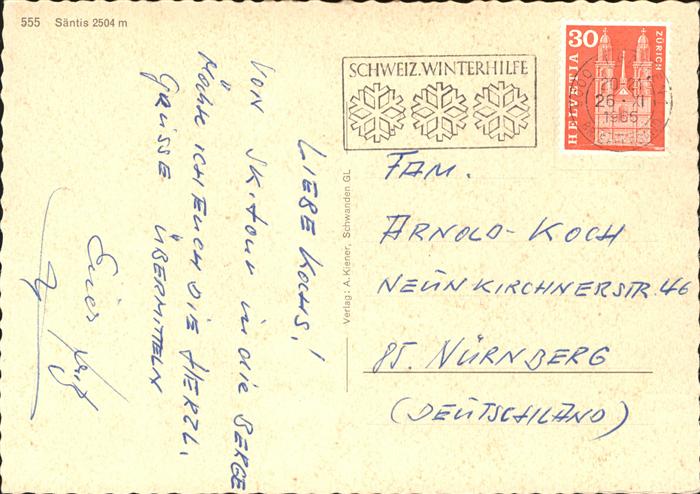 555 Säntis 2504 m
SCHWEIZ. WINTERHILFE
30
HELVETIA
ZÜRICH
20-21
26. XI
1965
Verlag: A. Kiener, Schwanden GL
LIEBE KOCHS!
VON SKitour in die BERGE
Möchte ICH EUCH DIE HERZL.
GRÜSSE ÜBERMITTELN
Euer
FAM.
ARNOLD-KOCH
NEUNKIRCHNERSTR. 46
85 NÜRNBERG
(DEUTSCHLAND)